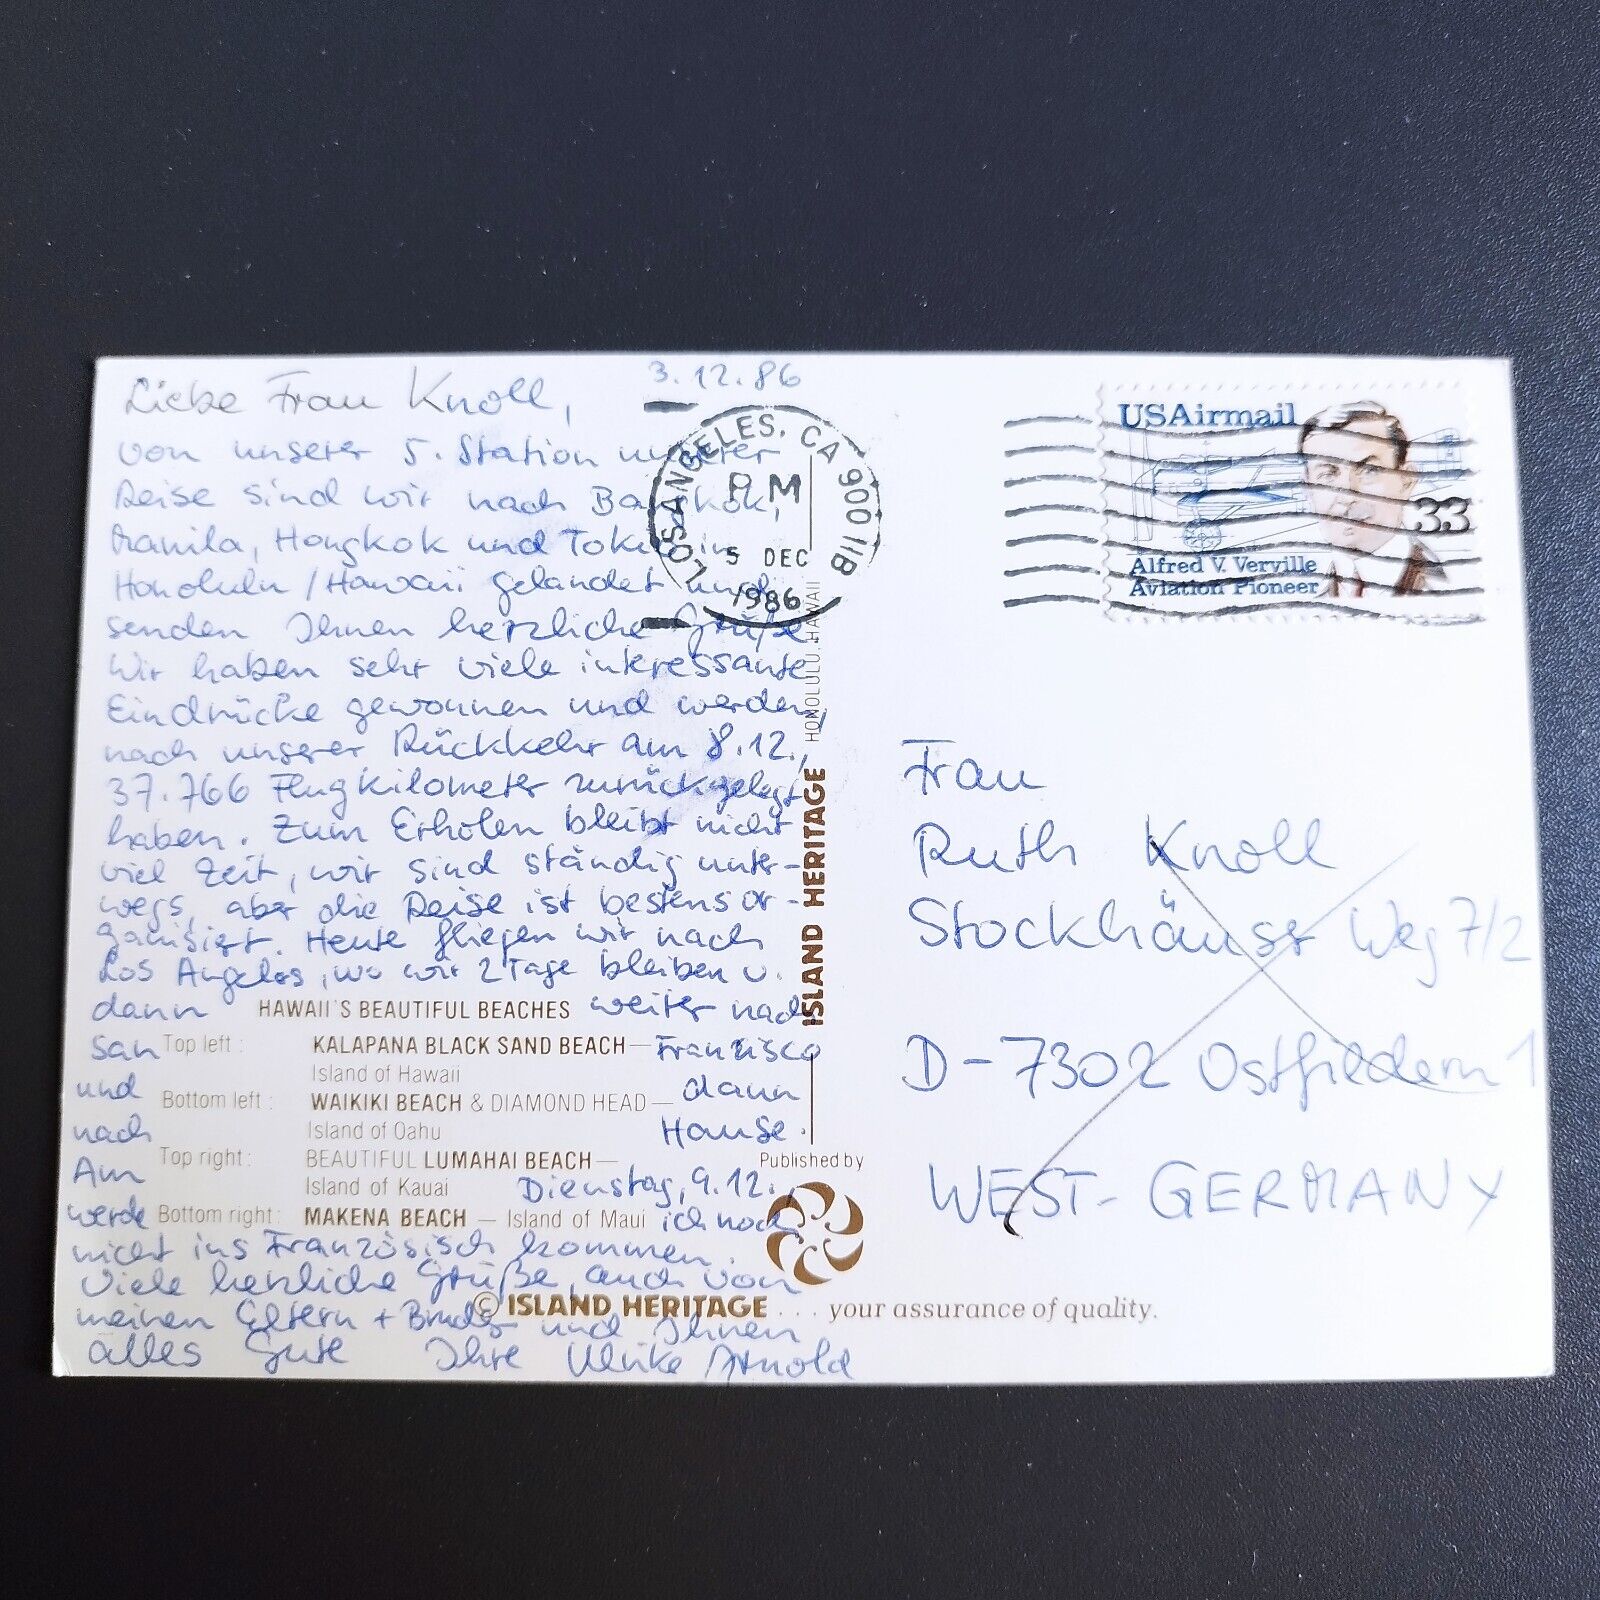 3.12.86
Liebe Frau Knoll,
von unserer 5. Station unserer
Reise sind wir nach Bangkok,
Manila, Hongkok und Tokio in
Honolulu/Hawaii gelandet und
senden Ihnen herzliche Grüße.
Wir haben sehr viele interessante
Eindrücke gewonnen und werden,
nach unserer Rückkehr am 8.12.,
37.766 Flugkilometer zurückgelegt
haben. Zum Erholen bleibt nicht
viel Zeit, wir sind ständig unter-
wegs, aber die Reise ist bestens or-
ganisiert. Heute fliegen wir nach
Los Angeles, wo wir 2 Tage bleiben u.
dann weiter nach
San Franzisco
und dann
nach Hause.
Am Dienstag, 9.12.,
werde ich noch
nicht ins Französisch kommen.
Viele herzliche Grüße, auch von
meinen Eltern + Bruder und Ihnen
alles Gute Ihre Ulrike Arnold
HAWAII'S BEAUTIFUL BEACHES
Top left: KALAPANA BLACK SAND BEACH—
Island of Hawaii
Bottom left: WAIKIKI BEACH & DIAMOND HEAD—
Island of Oahu
Top right: BEAUTIFUL LUMAHAI BEACH—
Island of Kauai
Bottom right: MAKENA BEACH — Island of Maui
Published by
© ISLAND HERITAGE . . . your assurance of quality.
ISLAND HERITAGE HONOLULU, HAWAII
LOS ANGELES, CA 900 IIB
PM
5 DEC
1986
USAirmail
33
Alfred V. Verville
Aviation Pioneer
Frau
Ruth Knoll
Stockhäuser Weg 7/2
D-7302 Ostfildern 1
WEST-GERMANY